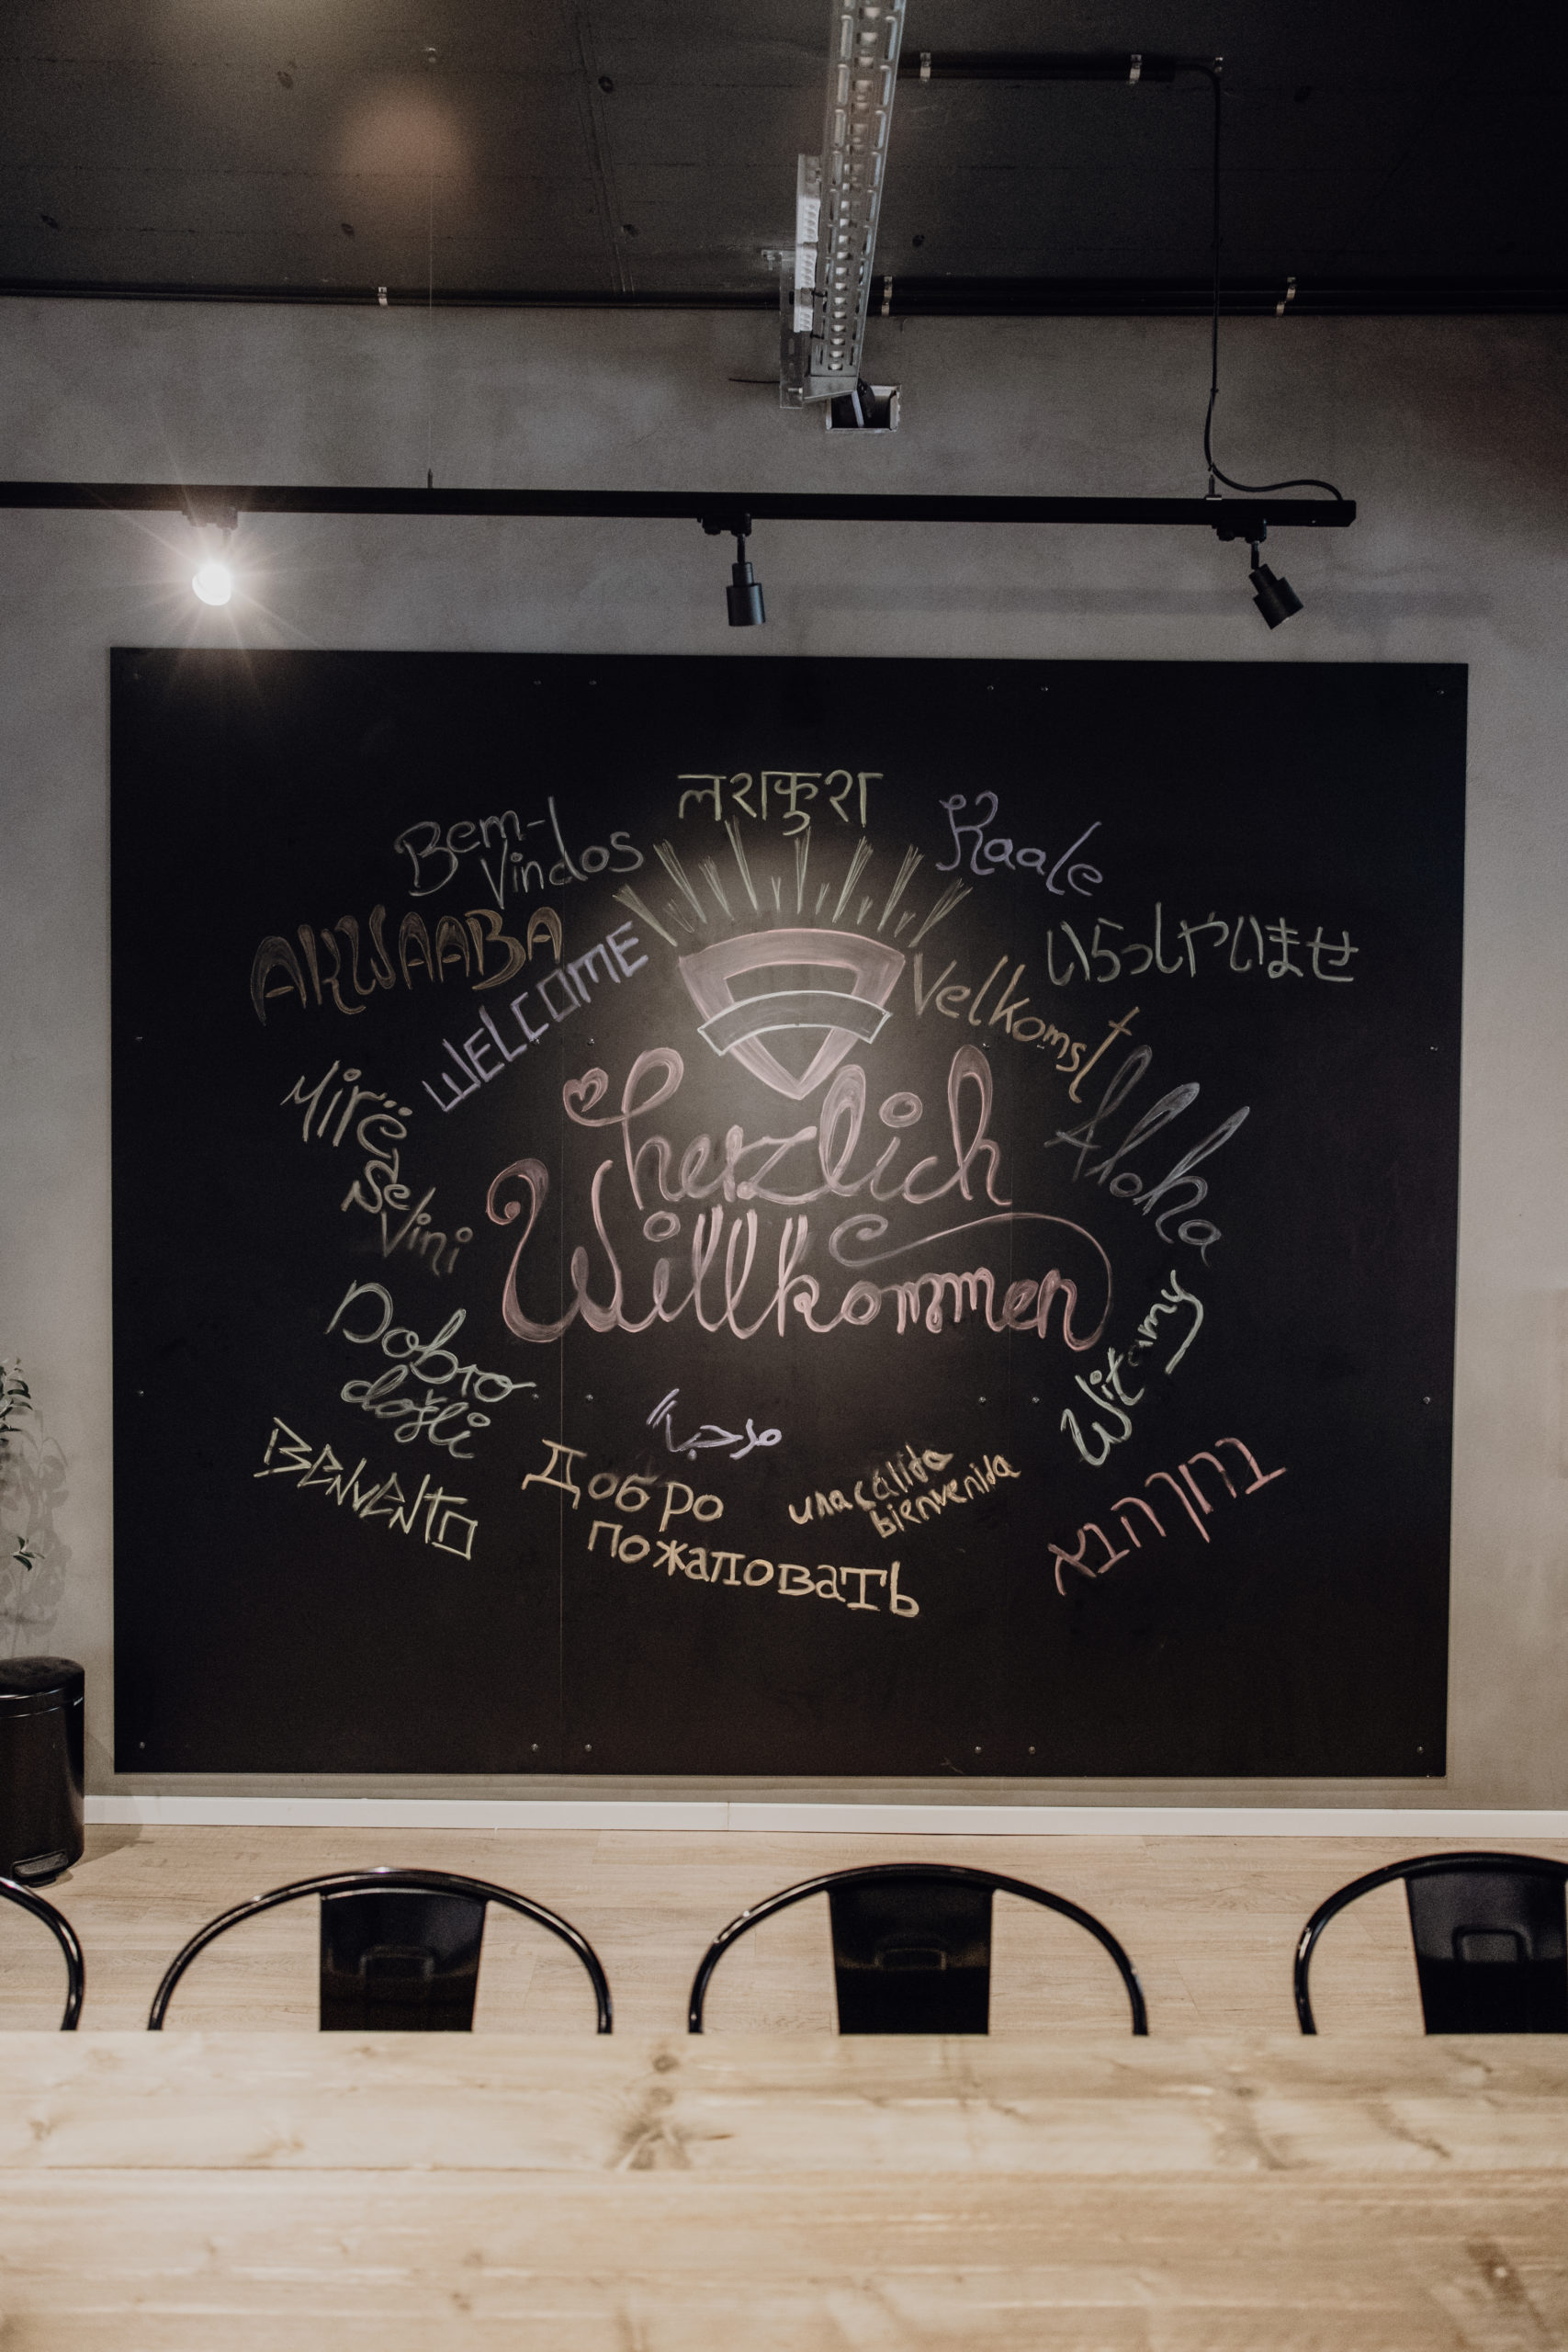 लशकुश
Bem-
Vindos
Kaale
AKWAABA
WELCOME
いらっしゃいませ
Velkomst
Mirë
Se
Vini
herzlich
Willkommen
Aloha
Dobro
došli
Witamy
مرحباً
BENVENTO
Добро
пожаловать
una cálida
bienvenida
ברוך הבא